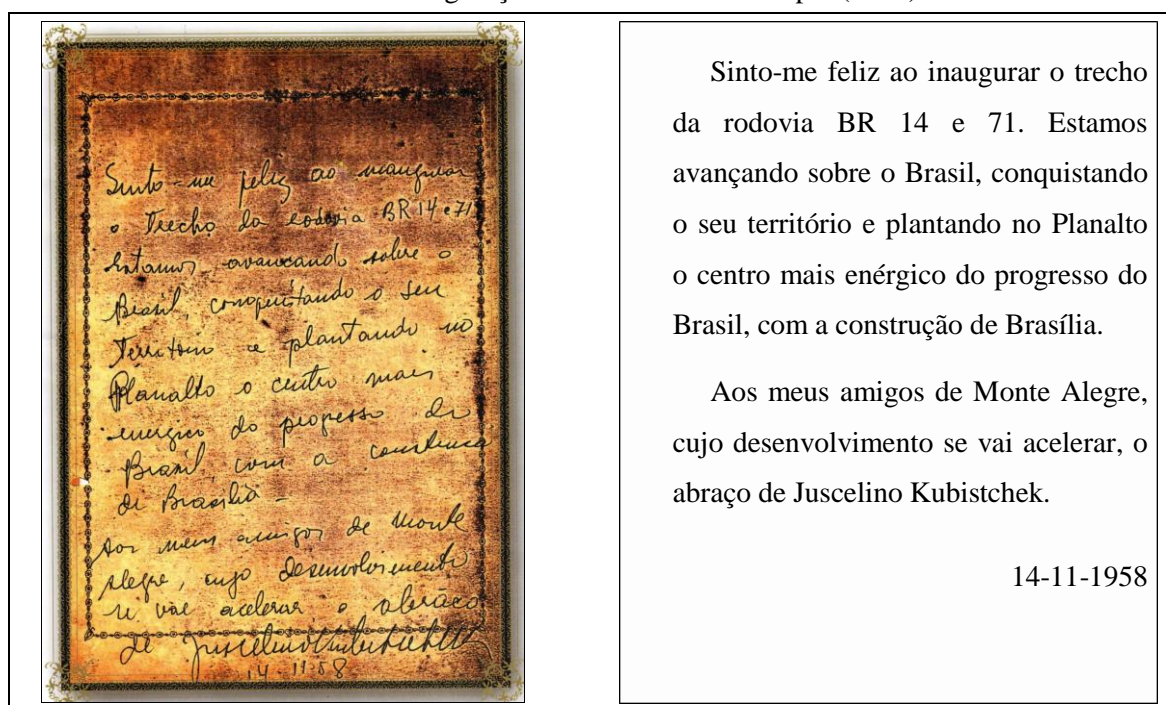 Sinto-me feliz ao inaugurar
o Trecho da rodovia BR 14 e 71
Estamos avancando sobre o
Brasil, conquistando o seu
Territorio e plantando no
Planalto o centro mais
energico do progresso do
Brasil, com a construcao
de Brasilia -
Aos meus amigos de Monte
Alegre, cujo desenvolvimento
se vai acelerar o abraço
de Juscelino Kubitschek
14-11-58
Sinto-me feliz ao inaugurar o trecho
da rodovia BR 14 e 71. Estamos
avançando sobre o Brasil, conquistando
o seu território e plantando no Planalto
o centro mais enérgico do progresso do
Brasil, com a construção de Brasília.
Aos meus amigos de Monte Alegre,
cujo desenvolvimento se vai acelerar, o
abraço de Juscelino Kubistchek.
14-11-1958